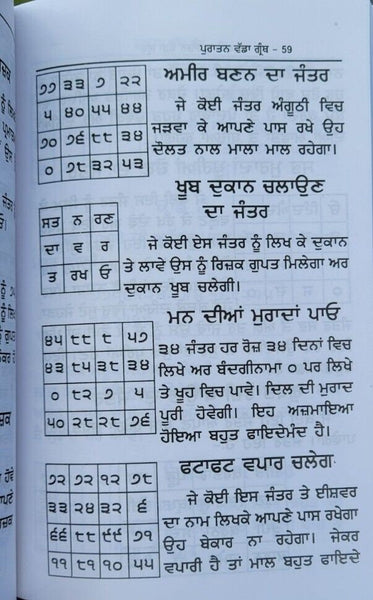 ਪੁਰਾਤਨ ਵੱਡਾ ਗ੍ਰੰਥ - 59
ਅਮੀਰ ਬਣਨ ਦਾ ਜੰਤਰ
੭੭ ੩੩ ੭ ੨੨
੫ ੪੦ ੫੫ ੪੪
੭੦ ੭੬ ੮੮ ੩੪
੦ ੭੮ ੩੨ ੫੩
ਜੇ ਕੋਈ ਜੰਤਰ ਅੰਗੂਠੀ ਵਿਚ
ਜੜਵਾ ਕੇ ਆਪਣੇ ਪਾਸ ਰਖੇ ਉਹ
ਦੌਲਤ ਨਾਲ ਮਾਲਾ ਮਾਲ ਰਹੇਗਾ।
ਖੂਬ ਦੁਕਾਨ ਚਲਾਉਣ
ਦਾ ਜੰਤਰ
ਸਤ ਨ ਰਣ
ਦਾ ਵ ਰ
ਤ ਰਖ ਓ
ਜੇ ਕੋਈ ਏਸ ਜੰਤਰ ਨੂੰ ਲਿਖ ਕੇ ਦੁਕਾਨ
ਤੇ ਲਾਵੇ ਉਸ ਨੂੰ ਰਿਜ਼ਕ ਗੁਪਤ ਮਿਲੇਗਾ ਅਰ
ਦੁਕਾਨ ਖੂਬ ਚਲੇਗੀ।
ਮਨ ਦੀਆਂ ਮੁਰਾਦਾਂ ਪਾਓ
੪੫ ੮੮ ੮ ੫੭
੪੩ ੮੫ ੩੮ ੩੪
੦ ੮੨ ੭ ੫
੫੦ ੨੮ ੨੮ ੭੬
੩੪ ਜੰਤਰ ਹਰ ਰੋਜ਼ ੩੪ ਦਿਨਾਂ ਵਿਚ
ਲਿਖੇ ਅਰ ਬੰਦਗੀਨਾਮਾ ੦ ਪਰ ਲਿਖੇ
ਤੇ ਖੂਹ ਵਿਚ ਪਾਵੇ। ਦਿਲ ਦੀ ਮੁਰਾਦ
ਪੂਰੀ ਹੋਵੇਗੀ। ਇਹ ਅਜ਼ਮਾਇਆ
ਹੋਇਆ ਬਹੁਤ ਫਾਇਦੇਮੰਦ ਹੈ।
ਫਟਾਫਟ ਵਪਾਰ ਚਲੇਗ
੭੨ ੭੨ ੧੨ ੭੮
੩੩ ੨੪ ੩੨ ੬
੬੬ ੮੮ ੯੯ ੭੧
੧੧ ੮੧ ੧੦ ੫੫
ਜੇ ਕੋਈ ਇਸ ਜੰਤਰ ਤੇ ਈਸ਼ਵਰ
ਦਾ ਨਾਮ ਲਿਖਕੇ ਆਪਣੇ ਪਾਸ ਰਖੇਗਾ
ਉਹ ਬੇਕਾਰ ਨਾ ਰਹੇਗਾ। ਜੇਕਰ
ਵਪਾਰੀ ਹੈ ਤਾਂ ਮਾਲ ਬਹੁਤ ਫਾਇਦੇ